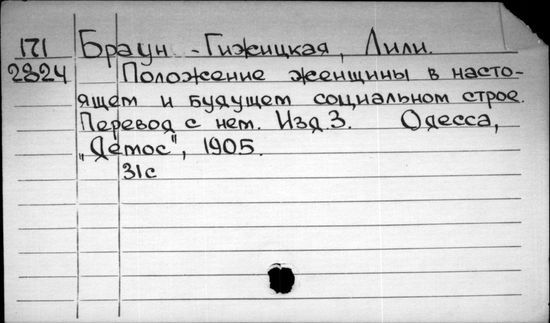 171 Браун - Гижицкая, Лили.
2824 Положение женщины в насто-
ящем и будущем социальном строе.
Перевод с нем. Изд. 3. Одесса,
„Демос", 1905.
31с